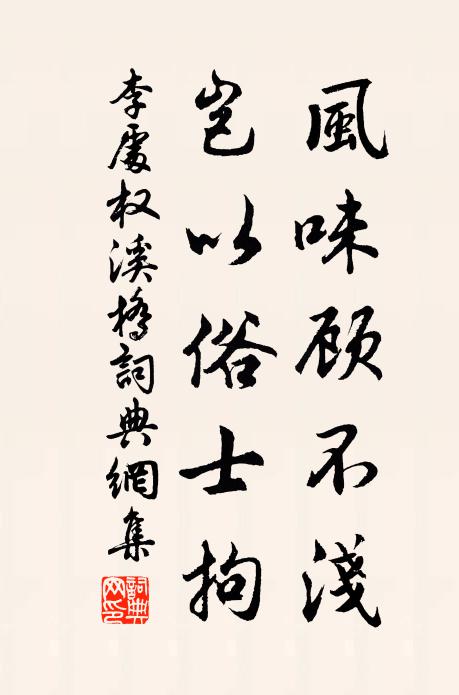 風味顧不淺
豈以俗士拘
李處权溪橋詞典網集
詞典網印